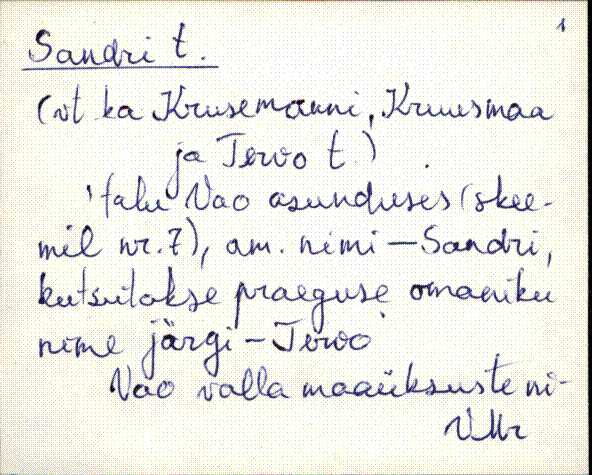 1
Sandri t.
(vt ka Krusemanni, Kruusmaa
ja Tervo t.)
'talu Vao asunduses (skee-
mil nr. 7), am. nimi – Sandri,
kutsutakse praeguse omaniku
nime järgi – Tervo'
Vao valla maaüksuste ni-
VMr